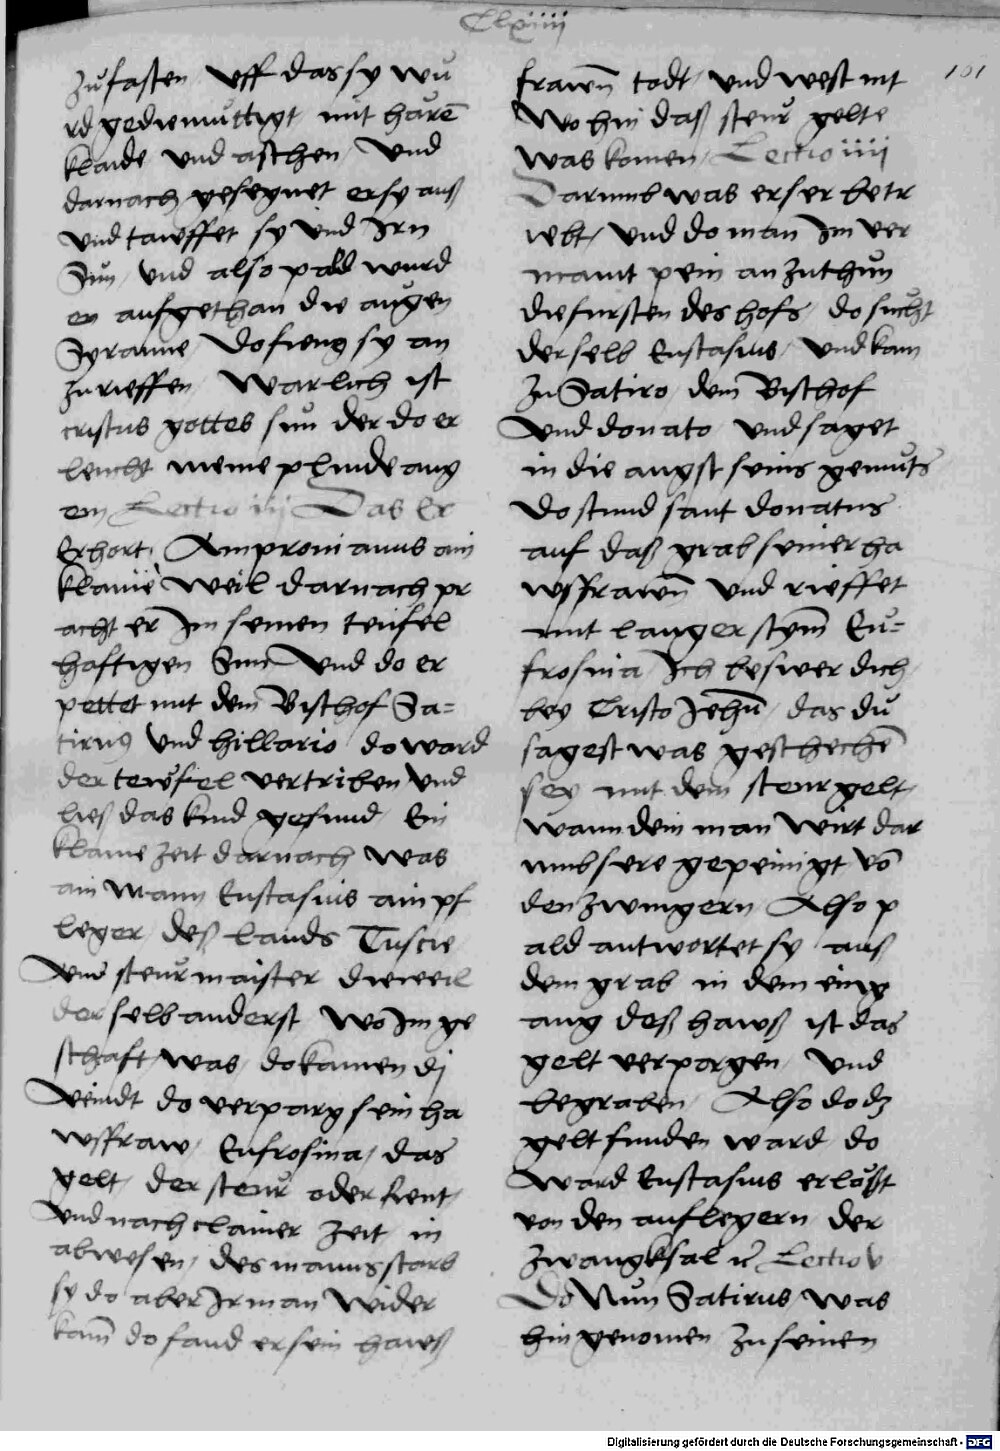 Clxiiii
161
zu fasten / uff das sy wu
rd gediemuttigt mit haren̄
klaide und aschen / Und
darnach gesegnet er sy auß
und tawffet sy und Irn
Sun / und also pald wurd
en aufgethan die augen
Syranne / Do fieng sy an
zu rieffen / Warlich ist
cristus gottes sun der do er
leucht meine plinde aug
en Lectio iij Das Er
Erhort / Ampronianus ain
klaine weil darnach pr
acht er Im seinen teufel
hafftigen Sun Und do er
pettet mit dem Bischof Sa=
tirus und hillario do ward
der tewfel vertriben und
ließ das kind gesund Ein
klaine zeit darnach was
ain Mann Eustasius ain pf
leger / deß lands Tuscie
Und steurmaister dieweil
der selb anderst wo Im ge
schaft / was / do kamen dj
Veindt do verparg sein ha
wsfraw / Eufrosina / das
gelt / der steur oder rent /
Und nach clainer zeit in
abwesen / des manns starb
sy do aber Ir man wider
kam̄ do fand er sein hawß
frawn̄ todt / und west nit
Wo hin daß steur gelte
was komen / Lectio iiij
Darumb was er ser betr
iebt / und do man Im ver
maint pein an zuthun
die fursten des hofs / do sucht
der selb Eustasius / und kam
zu Satiro / dem Bischof
Und donato / und saget
in die angst seins gemuts
Do stund sant donatus
auf daß grab seiner ha
wsfrawn̄ und rieffet
mit langer stym̄ Eu=
frosina / Ich beswer dich
bey Cristo Jehū / das du
sagest was geschechen̄
sey mit dem steur gelt /
wann dein man wirt dar
umb sere gepeinigt vō
den zwingern / Also p
ald antwortet sy / auß
dem grab in dem eing
ang deß hawß ist das
gelt verporgen / Und
begraben / Also do dz
gelt funden ward do
Ward Eustasius erlößt
von den auflegern der
zwangksal ꝛc Lectio v
Do Nun Satirus / was
hin genomen zu seinen
Digitalisierung gefördert durch die Deutsche Forschungsgemeinschaft - DFG